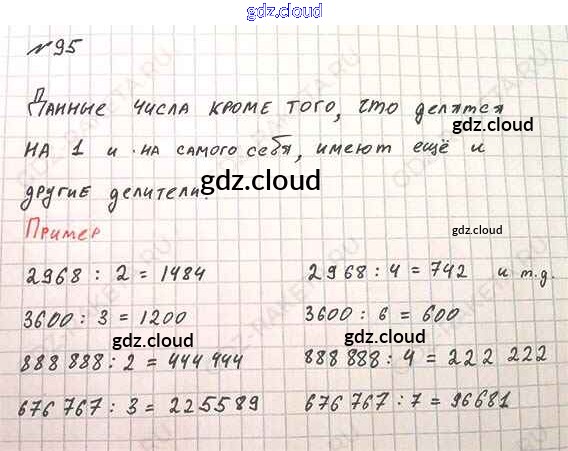 gdz.cloud
№ 95
Данные числа кроме того, что делятся
gdz.cloud
на 1 и на самого себя, имеют ещё и
другие делители.
gdz.cloud
Пример
gdz.cloud
2968 : 2 = 1484 2968 : 4 = 742 и т.д.
3600 : 3 = 1200 3600 : 6 = 600
gdz.cloud gdz.cloud
888 888 : 2 = 444 444 888 888 : 4 = 222 222
676 767 : 3 = 225589 676 767 : 7 = 96681
gdz.cloud